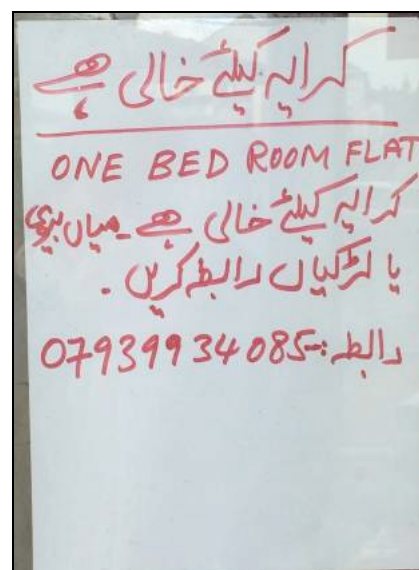 کرایہ کیلئے خالی ہے
ONE BED ROOM FLAT
کرایہ کیلئے خالی ہے ۔ میاں بیوی
یا لڑکیاں رابطہ کریں ۔
رابطہ :- 07939934085